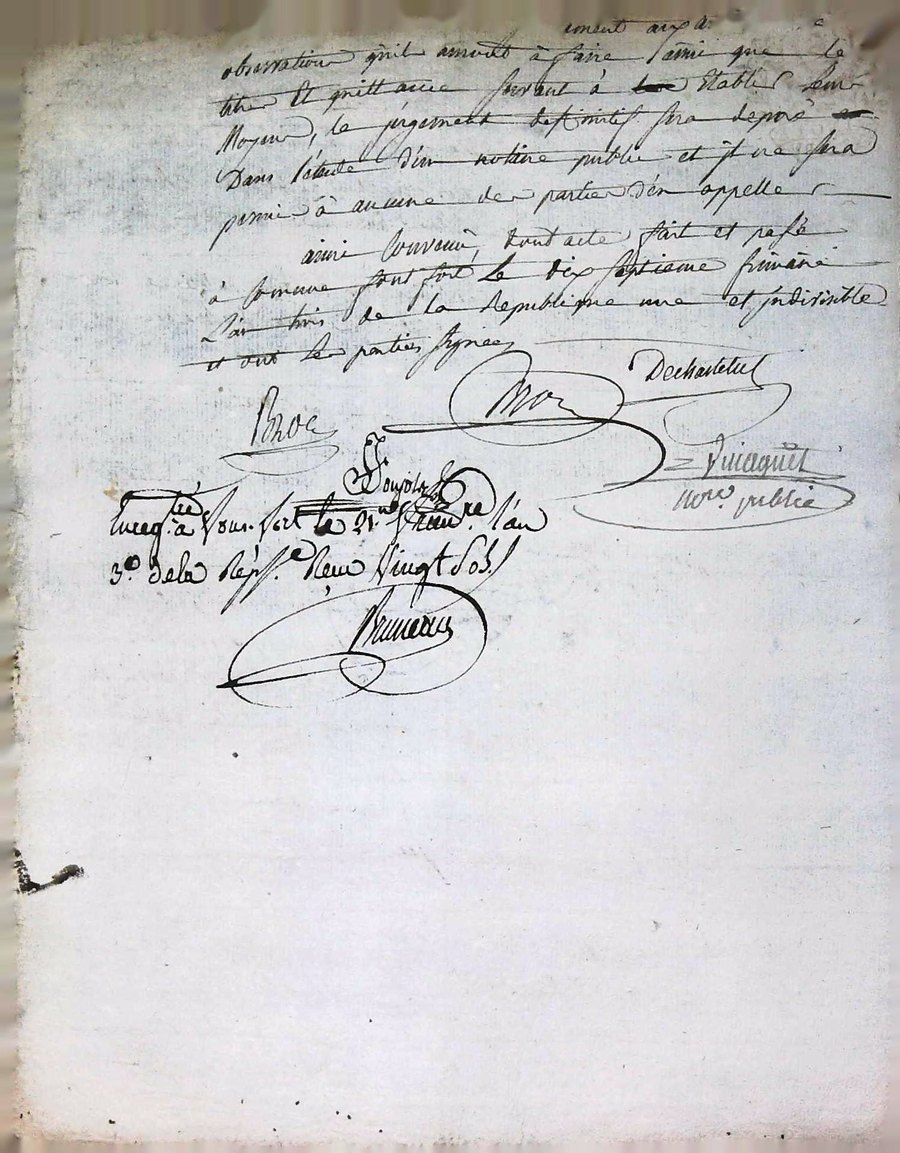 observations qu'il auroit à faire ainsi que le
titre et quittance servant à etablir leur
Moyens, le jugement definitif sera deposé
Dans l'étude d'un notaire public et il ne sera
permis à aucune des parties d'en appeller
ainsi Convenu, dont acte fait et passé
à Commune le dix septieme frimaire
L'an trois de la Republique une et jndivisible
et ont les parties signées
Dechastelus
Broc
Broc
nore. public
Enregtré à le 21 frimre l'an
3e. dela Repe. Reçu Vingt Sols
Bruneau